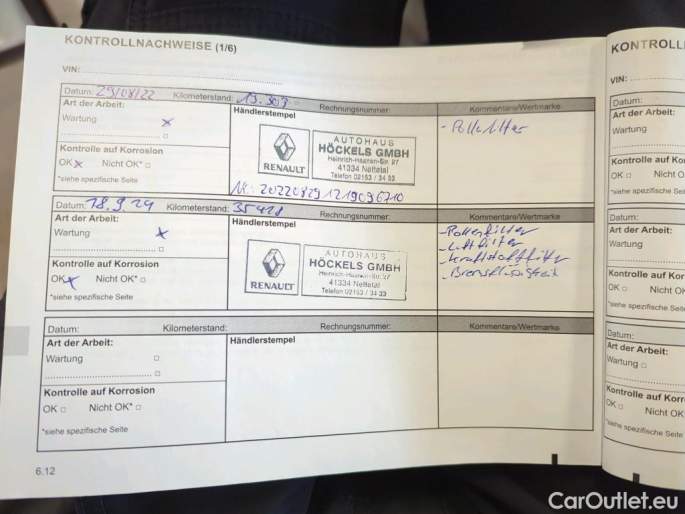 KONTROLLNACHWEISE (1/6)
VIN:
Datum: 29/08/22 Kilometerstand: 13.303 Rechnungsnummer: Kommentare/Wertmarke
Art der Arbeit: Händlerstempel
Wartung x - Pollenfilter
Kontrolle auf Korrosion
OK x Nicht OK* □
*siehe spezifische Seite
RENAULT
AUTOHAUS
HÖCKELS GMBH
Heinrich-Haanen-Str. 97
41334 Nettetal
Telefon 02153 / 34 33
Datum: 18.9.24 Kilometerstand: 35428 Rechnungsnummer: Kommentare/Wertmarke
Art der Arbeit: Händlerstempel
Wartung x
Kontrolle auf Korrosion
OK x Nicht OK* □
*siehe spezifische Seite
RENAULT
AUTOHAUS
HÖCKELS GMBH
41334 Nettetal
Telefon 02153 / 34 33
- Pollenfilter
- Luftfilter
- Kraftstofffilter
- Bremsflüssigkeit
Datum: Kilometerstand: Rechnungsnummer: Kommentare/Wertmarke
Art der Arbeit: Händlerstempel
Wartung □
Kontrolle auf Korrosion
OK □ Nicht OK* □
*siehe spezifische Seite
6.12
KONTROLL
VIN:
Datum:
Art der Arbeit:
Wartung
Kontrolle auf Kor
OK □ Nicht O
*siehe spezifische Sei
Datum:
Art der Arbeit:
Wartung
Kontrolle auf Korros
OK □ Nicht OK
*siehe spezifische Seite
Datum:
Art der Arbeit:
Wartung □
Kontrolle auf Korros
OK □ Nicht OK*
*siehe spezifische Seite
CarOutlet.eu